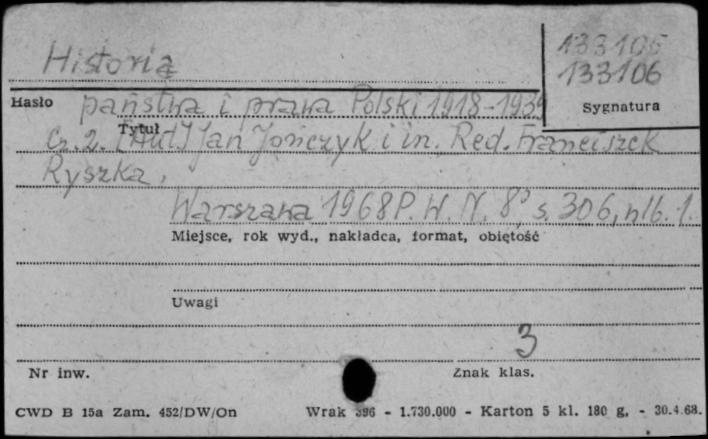 133105
Historia
133106
Hasło
państwa i prawa Polski 1918-1939
Sygnatura
Tytuł
Cz. 2. [Aut.] Jan Jończyk i in. Red. Franciszek
Ryszka,
Warszawa 1968 P. W. N. 8°, s. 306, nlb. 1.
Miejsce, rok wyd., nakładca, format, obiętość
Uwagi
3
Nr inw.
Znak klas.
CWD B 15a Zam. 452/DW/On
Wrak 396 - 1.730.000 - Karton 5 kl. 180 g. - 30.4.68.